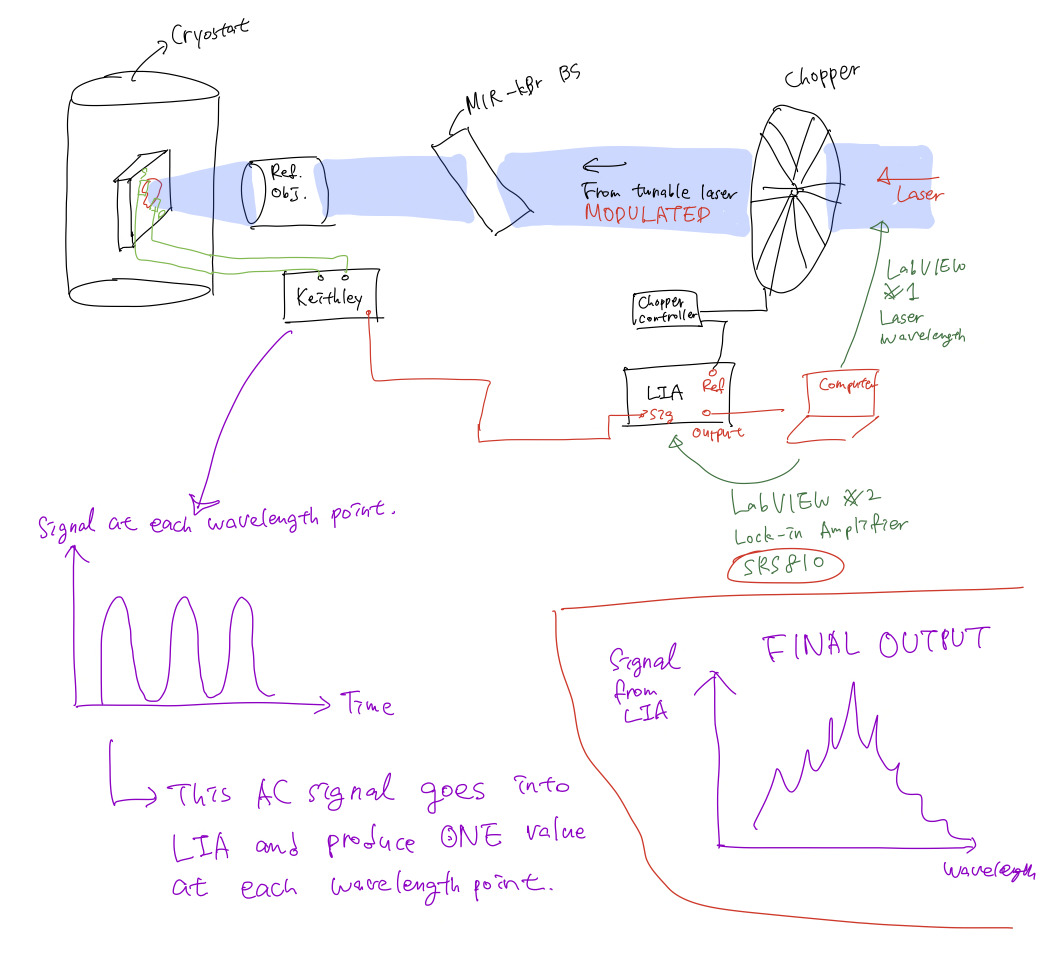 Cryostat
MIR-kBr BS
Chopper
Ref.
Obj.
From tunable laser
MODULATED
Laser
Keithley
Chopper
Controller
LabVIEW
#1
Laser
Wavelength
LIA
Ref
Sig
Output
Computer
LabVIEW #2
Lock-in Amplifier
SRS810
Signal at each wavelength point.
Time
This AC signal goes into
LIA and produce ONE value
at each wavelength point.
FINAL OUTPUT
Signal
from
LIA
Wavelength